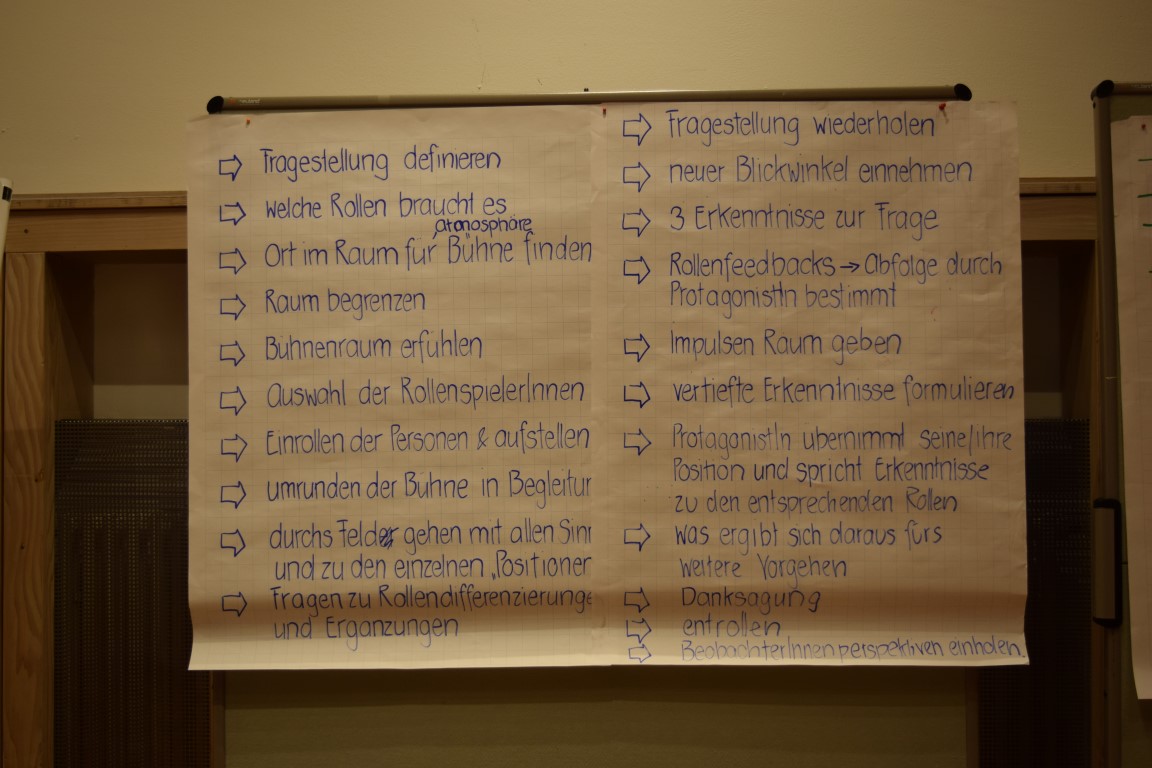 ⇨ Fragestellung definieren
⇨ welche Rollen braucht es
atmosphäre
⇨ Ort im Raum für "Bühne finden
⇨ Raum begrenzen
⇨ Bühnenraum erfühlen
⇨ Auswahl der RollenspielerInnen
⇨ Einrollen der Personen & aufstellen
⇨ umrunden der Bühne in Begleitun
⇨ durchs Feld gehen mit allen Sinn
und zu den einzelnen „Positionen
⇨ Fragen zu Rollendifferenzierunge
und Ergänzungen
⇨ Fragestellung wiederholen
⇨ neuer Blickwinkel einnehmen
⇨ 3 Erkenntnisse zur Frage
⇨ Rollenfeedbacks → Abfolge durch
ProtagonistIn bestimmt
⇨ Impulsen Raum geben
⇨ vertiefte Erkenntnisse formulieren
⇨ ProtagonistIn übernimmt seine/ihre
Position und spricht Erkenntnisse
zu den entsprechenden Rollen
⇨ was ergibt sich daraus fürs
weitere Vorgehen
⇨ Danksagung
⇨ entrollen
⇨ BeobachterInnenperspektiven einholen.